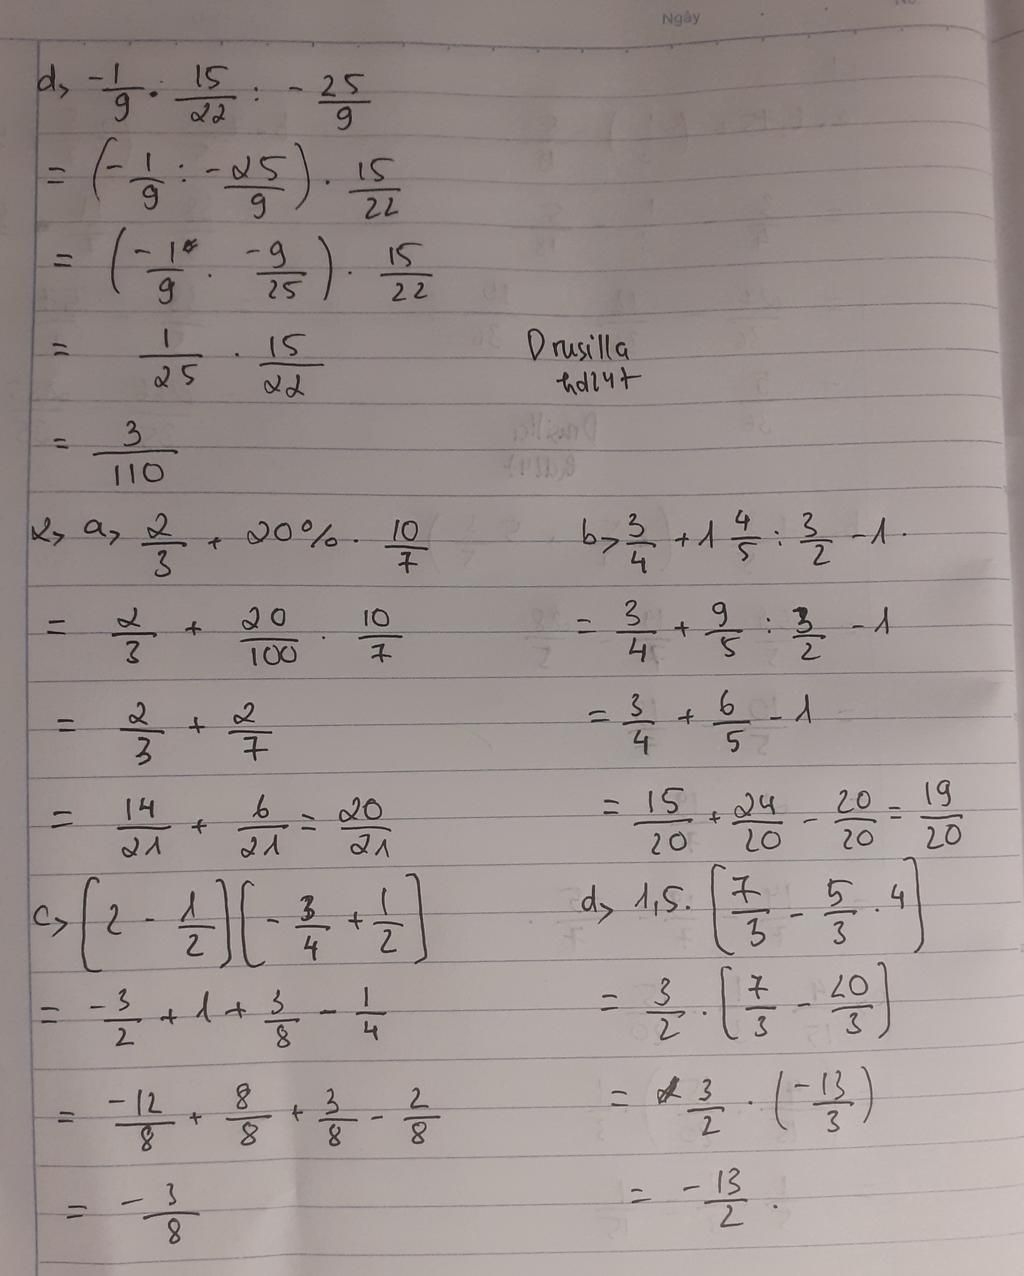 Ngày
d> -1/9 . 15/22 : -25/9
= (-1/9 : -25/9) . 15/22
= (-1/9 . -9/25) . 15/22
= 1/25 . 15/22
Drusilla
hd247
= 3/110
2> a> 2/3 + 20% . 10/7
= 2/3 + 20/100 . 10/7
= 2/3 + 2/7
= 14/21 + 6/21 = 20/21
b> 3/4 + 1 4/5 : 3/2 - 1.
= 3/4 + 9/5 : 3/2 - 1
= 3/4 + 6/5 - 1
= 15/20 + 24/20 - 20/20 = 19/20
c> [2 - 1/2][-3/4 + 1/2]
= -3/2 + 1 + 3/8 - 1/4
= -12/8 + 8/8 + 3/8 - 2/8
= -3/8
d> 1,5. [7/3 - 5/3 . 4]
= 3/2 . [7/3 - 20/3]
= 3/2 . (-13/3)
= -13/2.